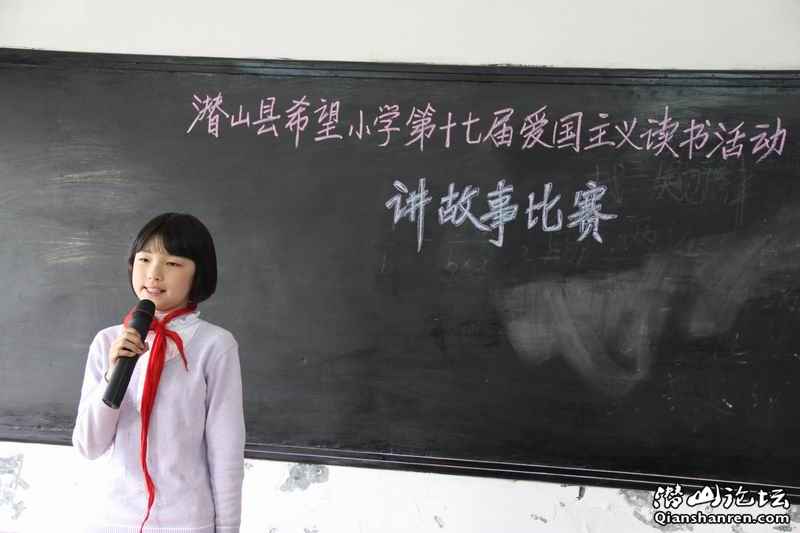 潜山县希望小学第十七届爱国主义读书活动
讲故事比赛
潜山论坛
Qianshanren.com